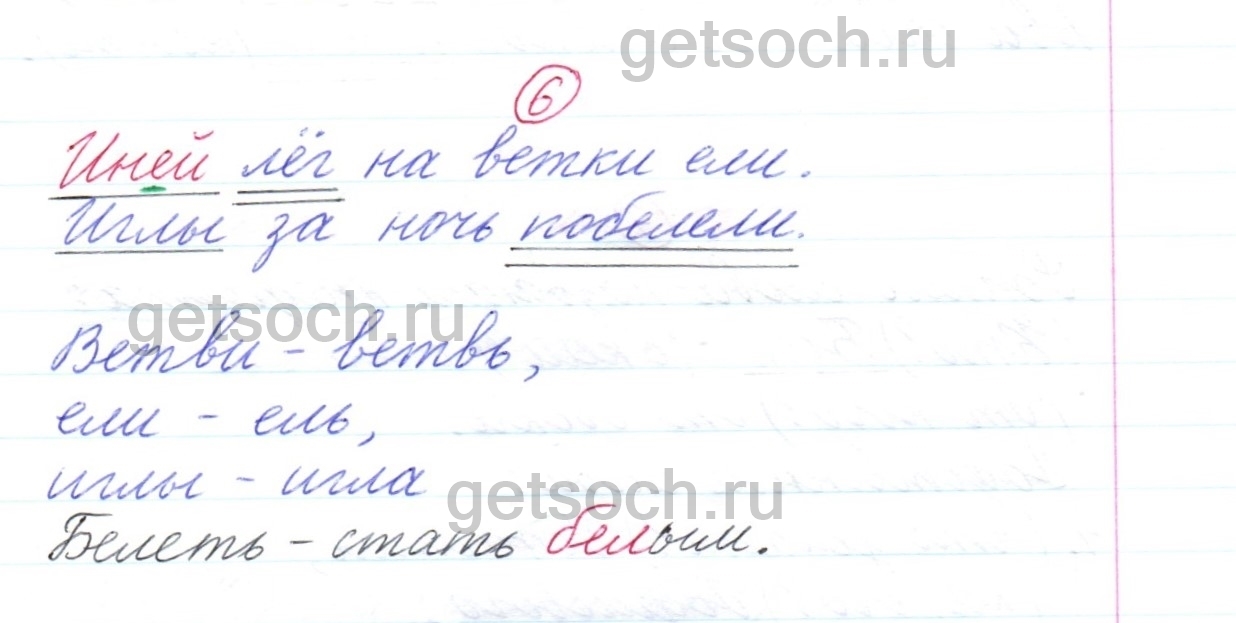 getsoch.ru
6
Иней лёг на ветки ели.
Иглы за ночь побелели.
getsoch.ru
Ветви - ветвь,
ели - ель,
иглы - игла
getsoch.ru
Белеть - стать белым.